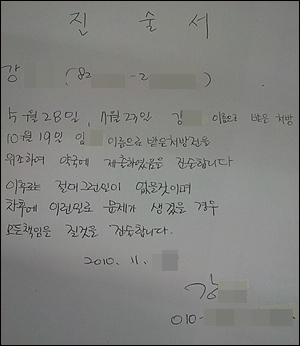 진 술 서
강 (82 -2 )
5월 28일, 1월 23일 김 이름으로 받은 처방
10월 19일 임 이름으로 받은 처방전을
위조하여 약국에 제출하였음을 진술합니다
이후로는 절대 그런일이 없을것이며
차후에 이런일로 문제가 생겼을 경우
모든책임을 질것을 진술합니다.
2010. 11.
강
010-